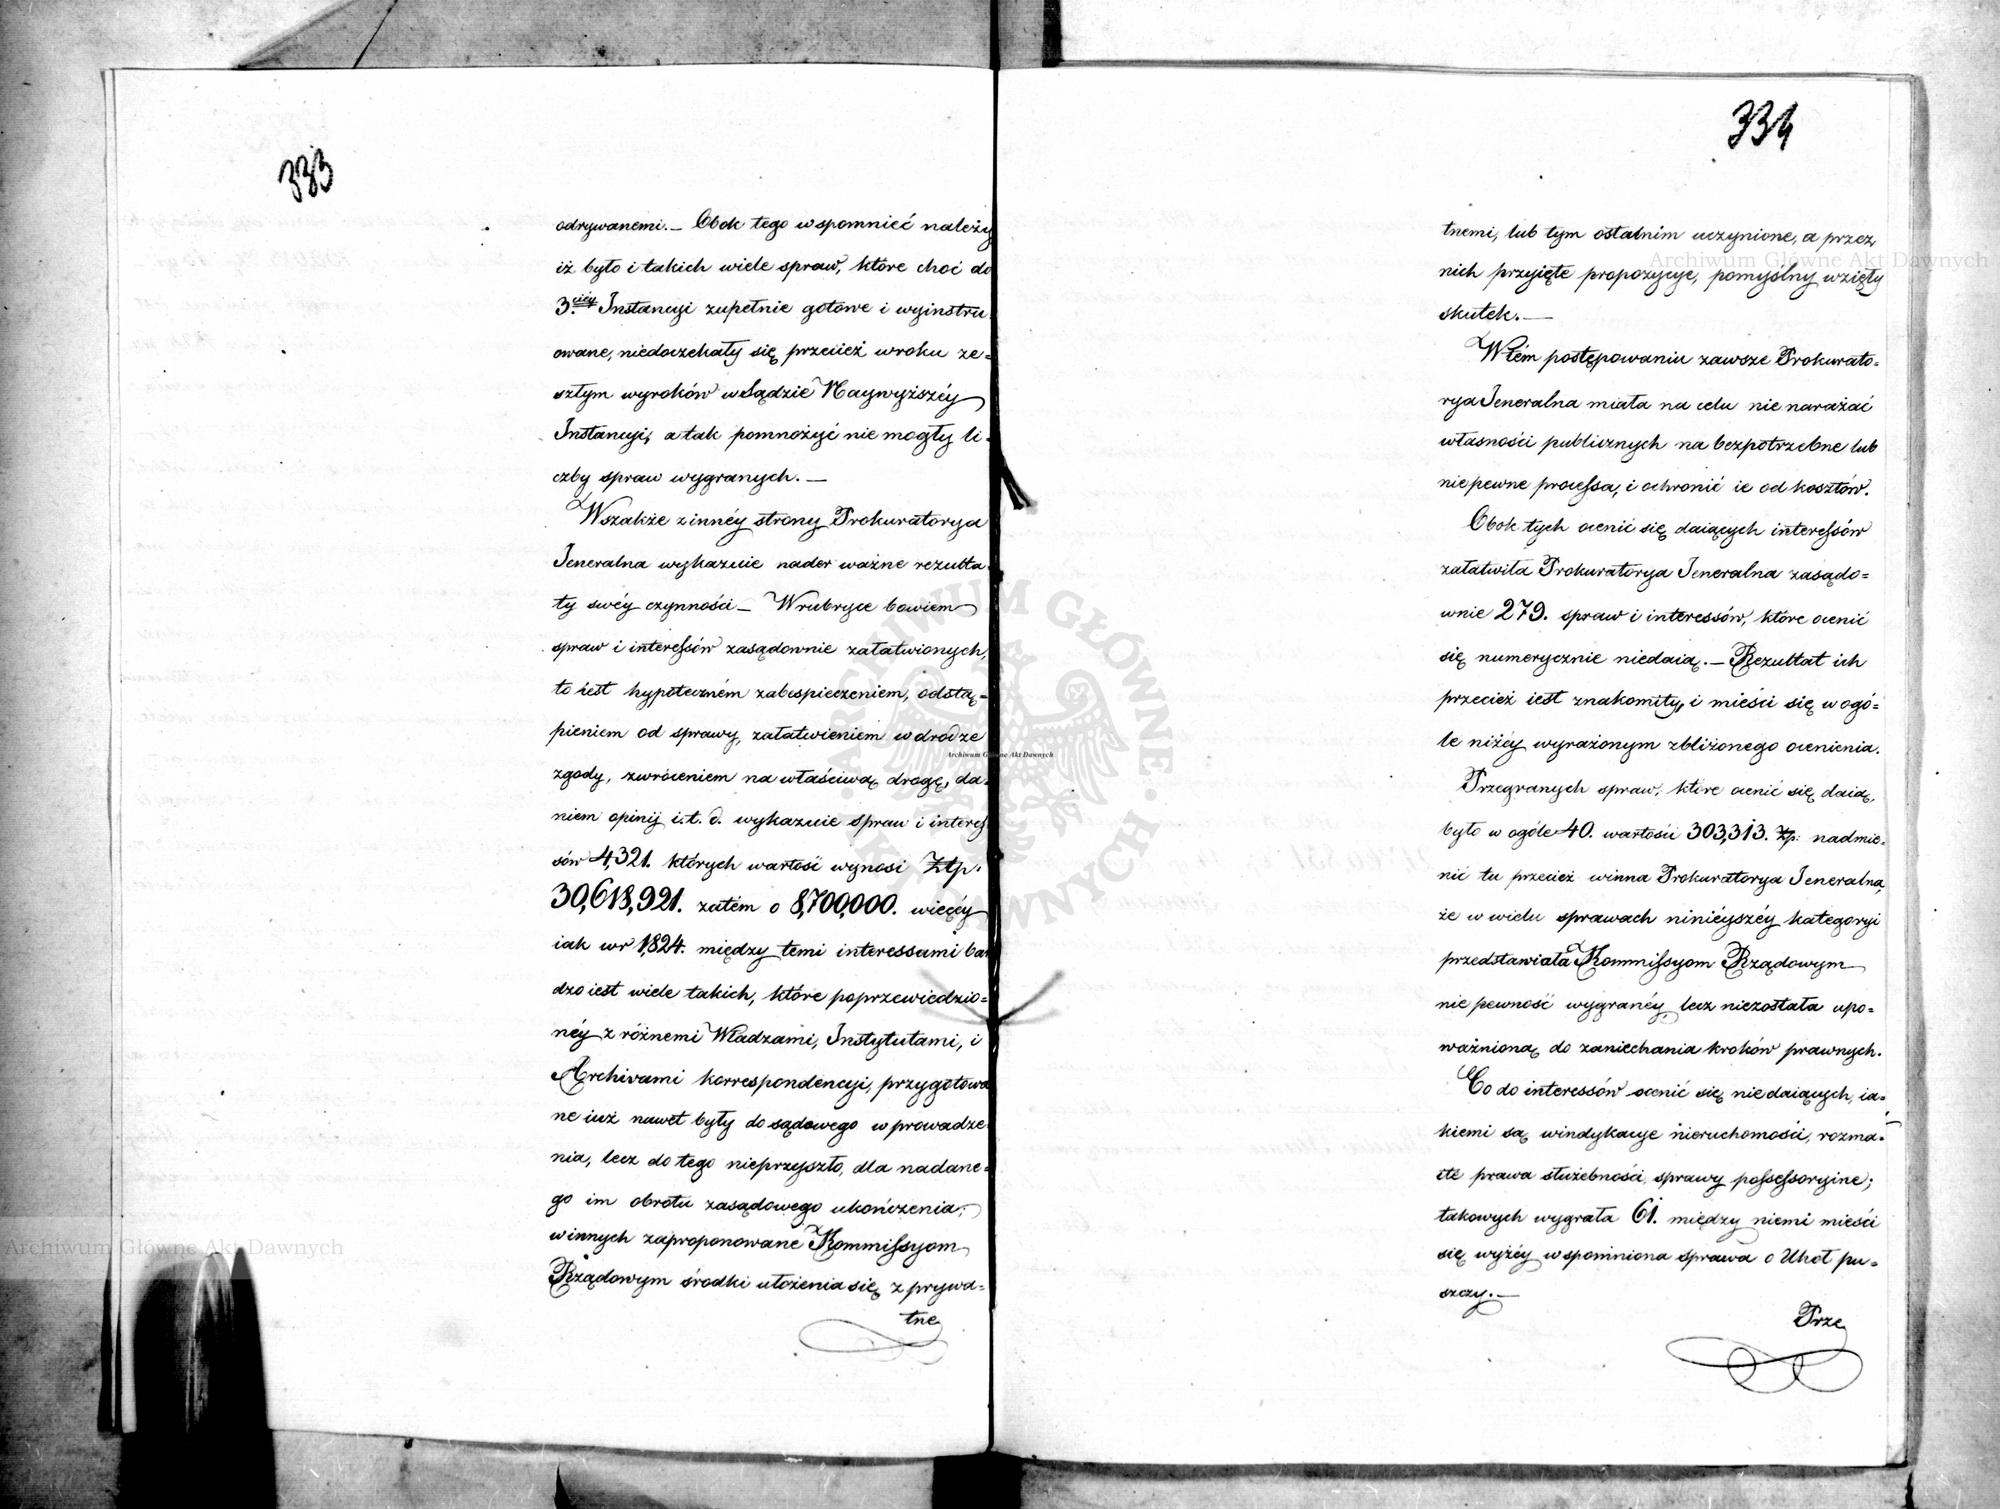 333
odrywanemi.— Obok tego wspomnieć należy
iż było i takich wiele spraw, które choć do
3.ciéy Instancyi zupełnie gotowe i wyinstru
owane, niedoczekały się przecież wroku ze=
szłym wyroków w Sądzie Naywyższéy
Instancyi, a tak pomnożyć nie mogły li-
czby spraw wygranych. —
Wszakże z innéy strony Prokuratorya
Jeneralna wykazuie nader ważne rezulta
ty swéy czynności — W rubryce bowiem
spraw i interessów zasądownie załatwionych,
to iest hypoteczném zabespieczeniem, odstą=
pieniem od sprawy, załatwieniem w drodze
zgody, zwróceniem na właściwą drogę, da-
niem opinij i.t.d. wykazuie spraw i interes
sów 4,321. których wartość wynosi Złp.
30,618,921. zatém o 8,700,000. więcéy
iak wr 1,824. między temi interessami bar
dzo iest wiele takich, które poprzewiedzio=
néy z różnemi Władzami, Instytutami, i
Archivami korrespondencyi, przygotowa
ne iuż nawet były do sądowego wprowadze
nia, lecz do tego nieprzyszło, dla nadane=
go im obrotu zasądowego ukończenia;
w innych zaproponowane Kommissyom
Rządowym środki ułożenia się z prywa=
tne
334
tnemi, lub tym ostatnim uczynione, a przez
nich przyięte propozycye, pomyślny wzięły
skutek. —
W tém postępowaniu zawsze Prokurato=
rya Jeneralna miała na celu nie narażać
własności publicznych na bezpotrzebne lub
niepewne processa, i ochronić ie od kosztów.
Obok tych ocenić się daiących interessów
załatwiła Prokuratorya Jeneralna zasądo=
wnie 279. spraw i interessów, które ocenić
się numerycznie niedaią. — Rezultat ich
przecież iest znakomity, i mieści się w ogó=
le niżéy wyrażonym zbliżonego ocenienia.
Przegranych spraw, które ocenić się daią,
było w ogóle 40. wartości 303,313. Złp. nadmie=
nić tu przecież winna Prokuratorya Jeneralna,
że w wielu sprawach niniéyszéy kategoryi
przedstawiała Kommissyom Rządowym
niepewność wygranéy, lecz niezostała upo=
ważnioną do zaniechania kroków prawnych.
Co do interessów ocenić się niedaiących, ia=
kiemi są windykacye nieruchomości, rozma=
ite prawa służebności, sprawy possessoryine;
takowych wygrała 61. między niemi mieści
się wyżéy wspomniona sprawa o Uhoł pu=
szczy. —
Prze
Archiwum Główne Akt Dawnych
Archiwum Główne Akt Dawnych
Archiwum Główne Akt Dawnych